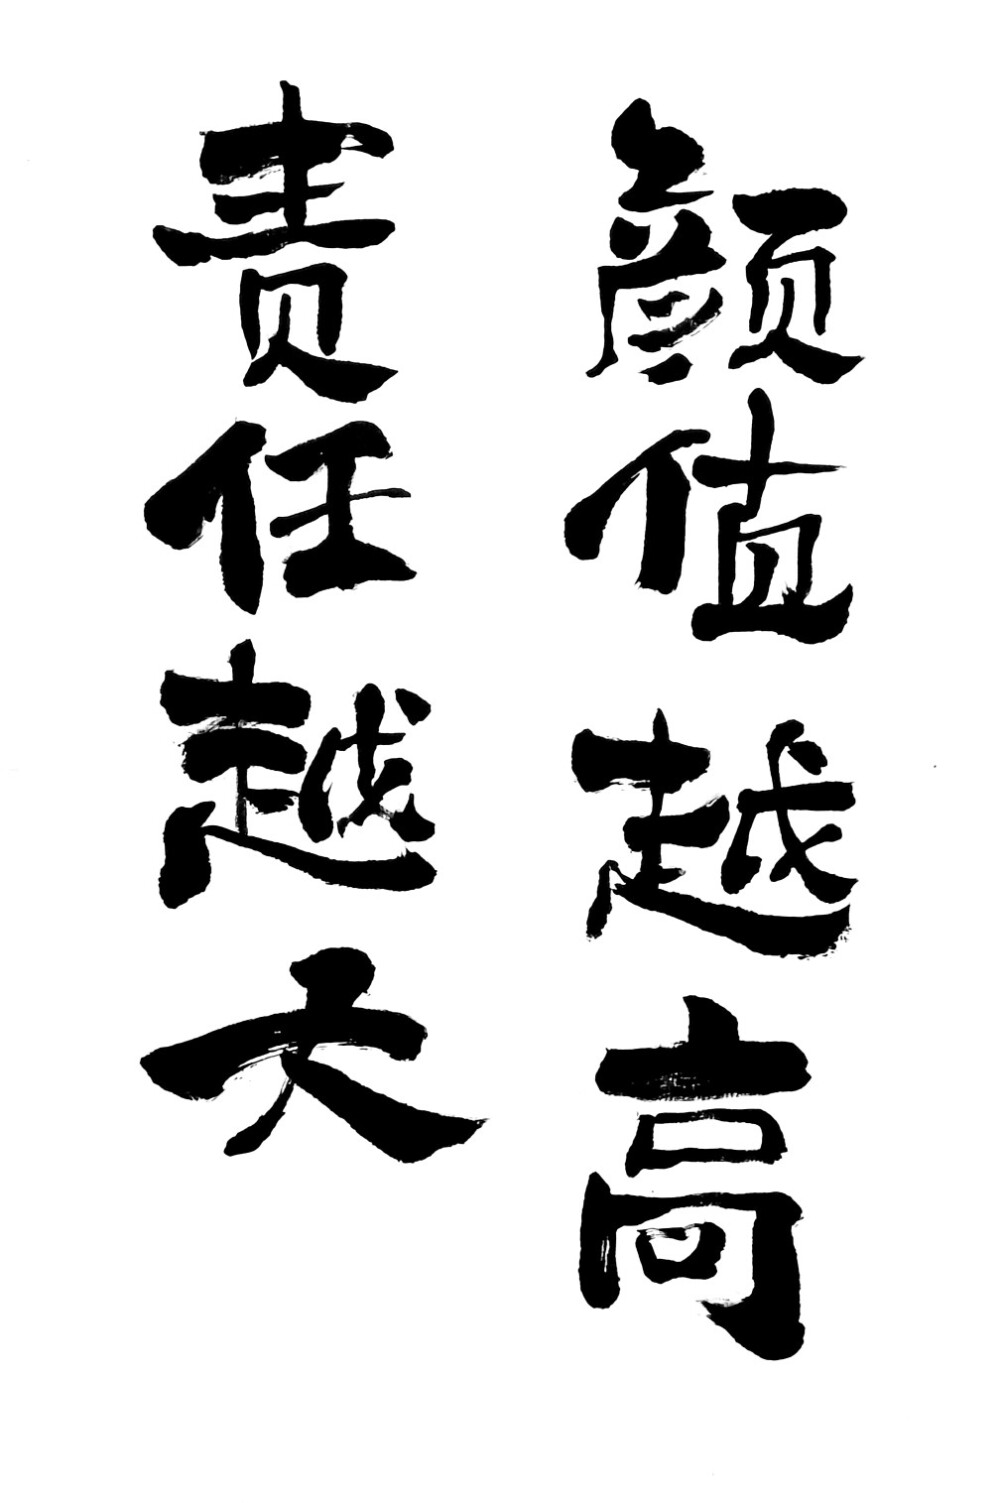 颜值越高
责任越大